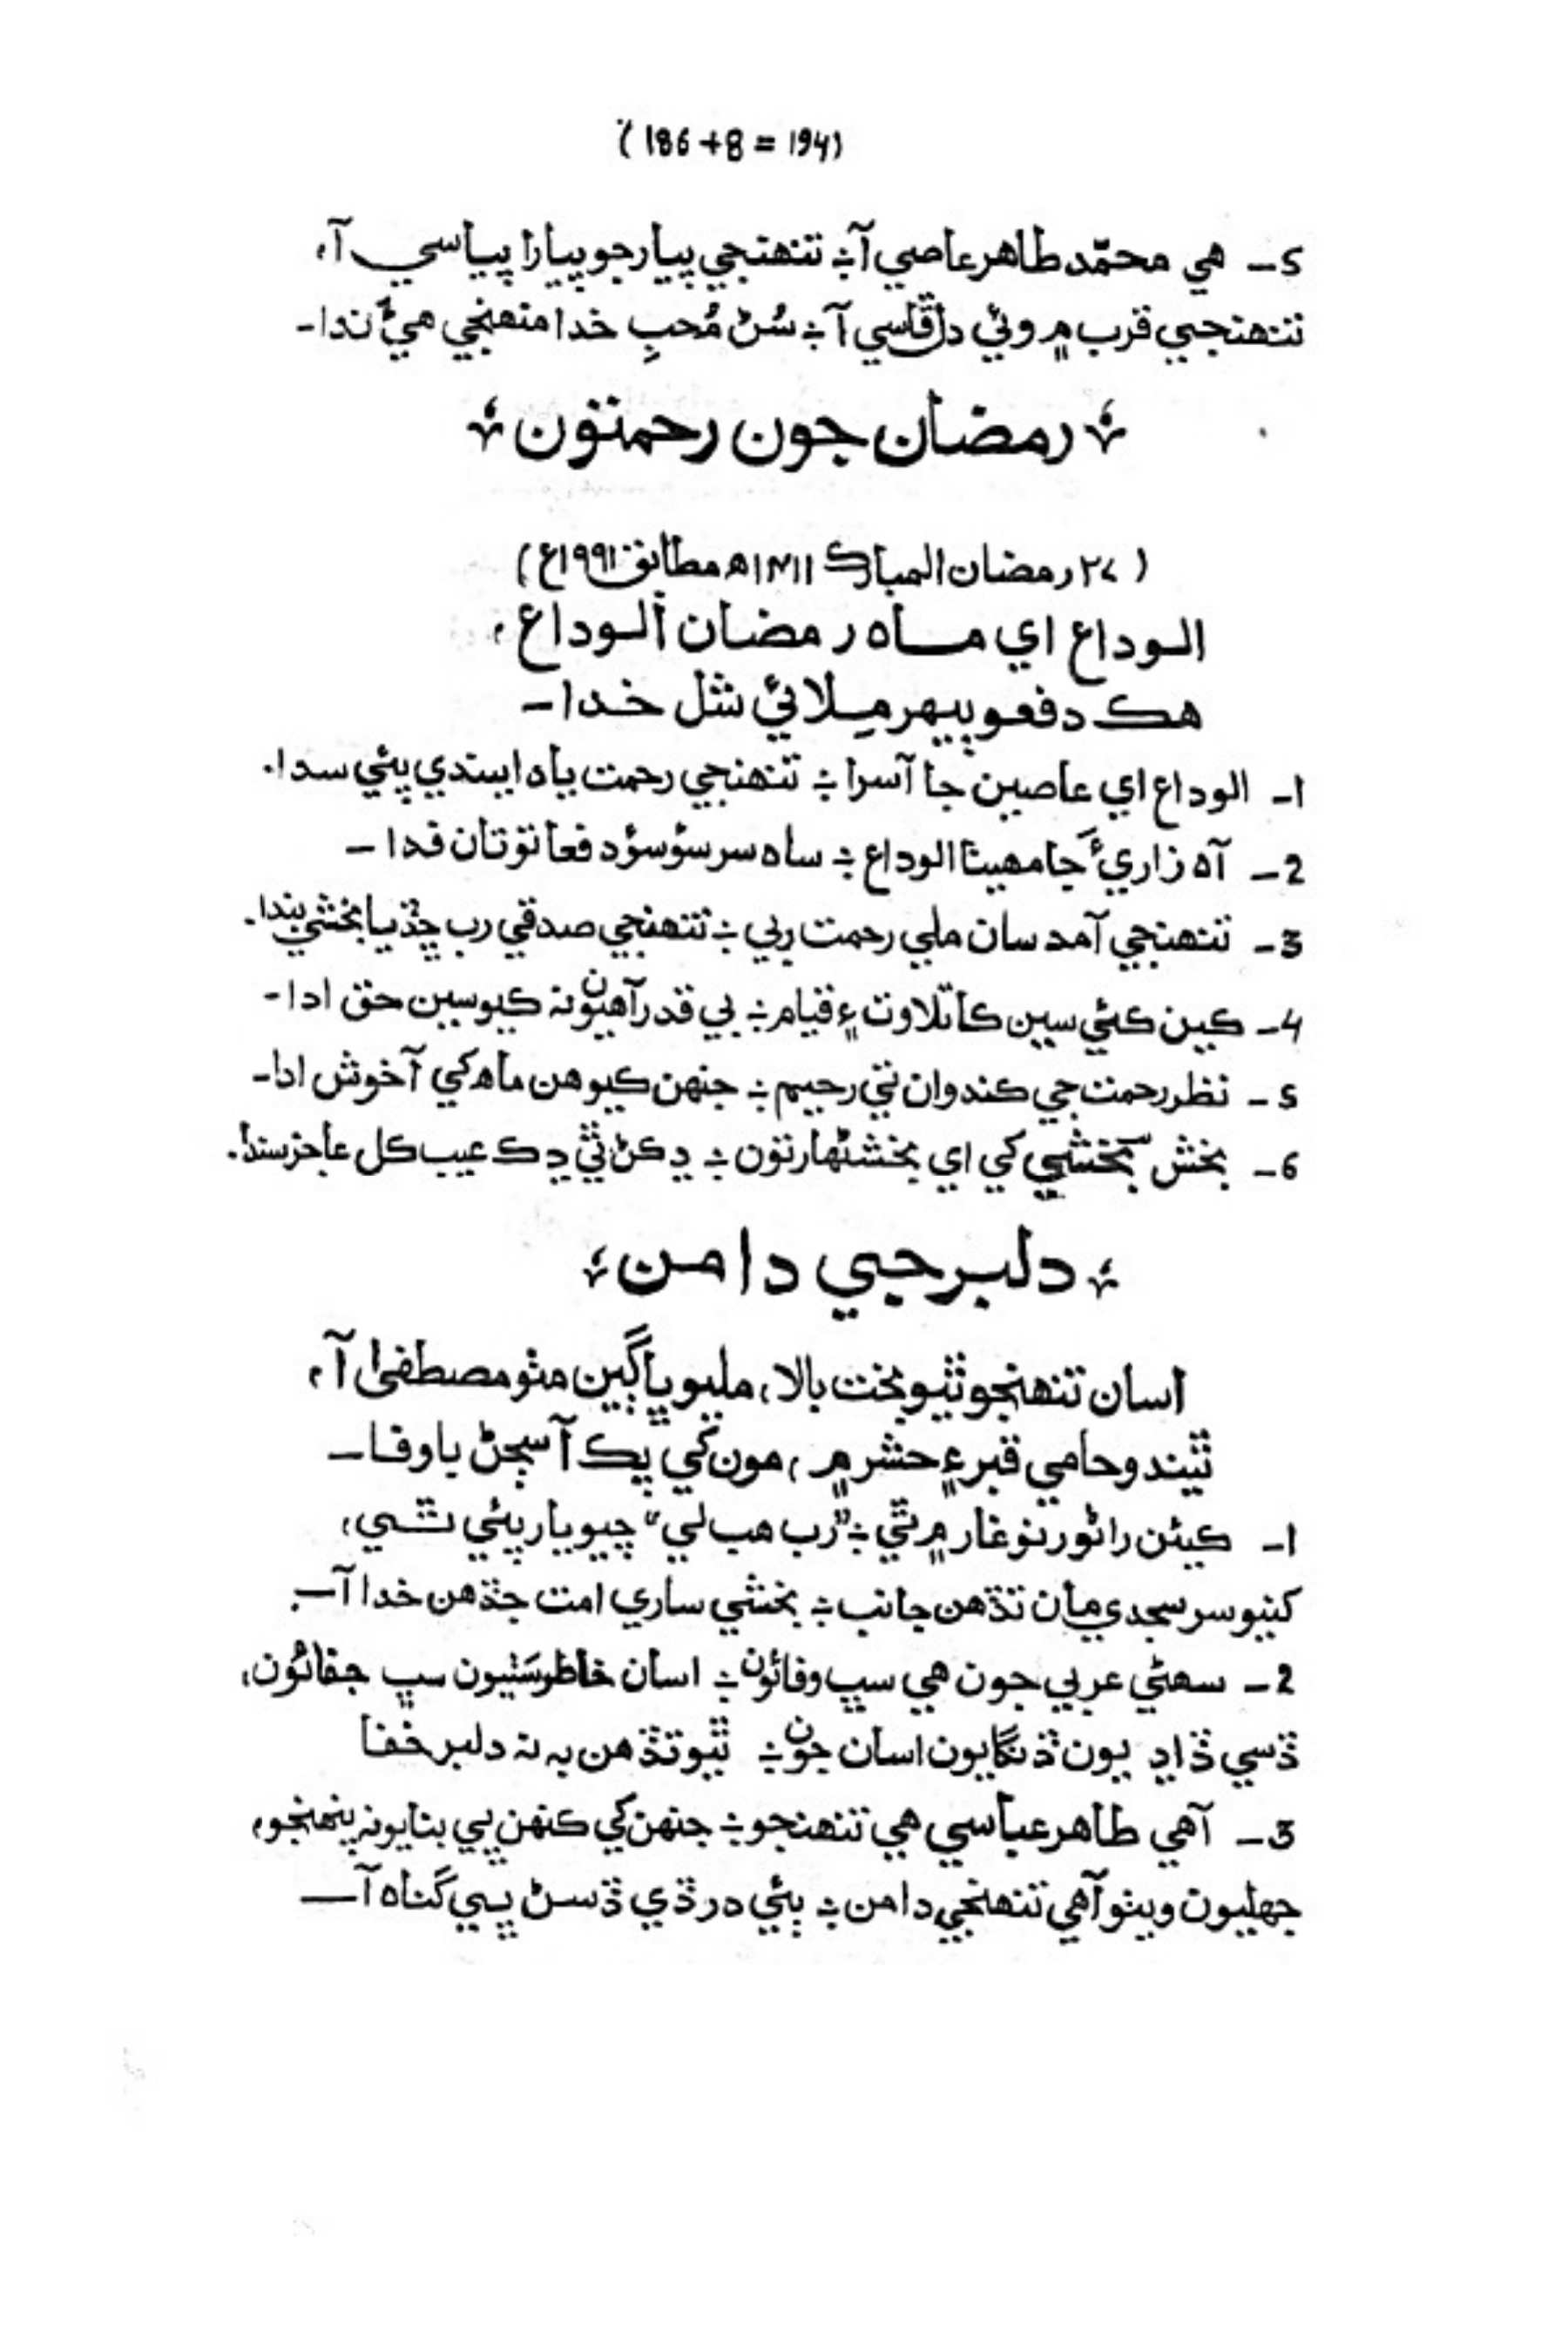 (186+8=194)
5- هي محمّد طاهر عاصي آ؞ تنهنجي پيار جو پيارا پياسي آ،
تنهنجي قرب ۾ وئي دل ڦاسي آ؞ سُڻ مُحبِ خدا منهنجي هيءَ ندا-
رمضان جون رحمتون
(۲۷ رمضان المبارڪ ۱۴۱۱ھ مطابق ۱۹۹۱ع)
الوداع اي ماه رمضان الوداع،
هڪ دفعو ٻيهر مِلائي شل خدا-
1- الوداع اي عاصين جا آسرا ؞ تنهنجي رحمت ياد ايندي پئي سدا.
2- آه زاريءَ جا مهينا الوداع ؞ ساه سر سؤ سؤ دفعا توتان فدا-
3- تنهنجي آمد سان ملي رحمت رٻي ؞ تنهنجي صدقي رب ڇڏيا بخشي بندا.
4- ڪين ڪئي سين ڪا تلاوت ۽ قيام ؞ بي قدر آهيون نه ڪيوسين حق ادا-
5- نظر رحمت جي ڪندوان تي رحيم ؞ جنهن ڪيو هن ماه کي آ خوش ادا-
6- بخش بخشي کي اي بخشڻهار تون ؞ ڍڪڻ ٿي ڍڪ عيب ڪل عاجز سندا.
دلبر جي دامن
اسان تنهنجو ٿيو بخت بالا، مليو ڀاڳين مٺو مصطفیٰ آ،
ٿيندو حامي قبر ۽ حشر ۾، مون کي پڪ آ سڄڻ باوفا-
1- ڪيئن راڻور نو غار ۾ ٿي ؞ "رب هب لي" چيو يار پئي ٿي،
کنيو سر سجدي مان تڏهن جانب ؞ بخشي ساري امت جڏهن خدا آ-
2- سهڻي عربي جون هي سڀ وفائون ؞ اسان خاطر سَٺيون سڀ جفائون،
ڏسي ڏاڍ يون ڏنگايون اسان جون ؞ ٿيو تڏهن به نه دلبر خفا
3- آهي طاهر عباسي هي تنهنجو ؞ جنهن کي ڪنهن ٻي بنايو نه پنهنجو،
جهليون ويٺو آهي تنهنجي دامن ؞ ٻئي در ڏي ڏسڻ ڀي گناه آ-